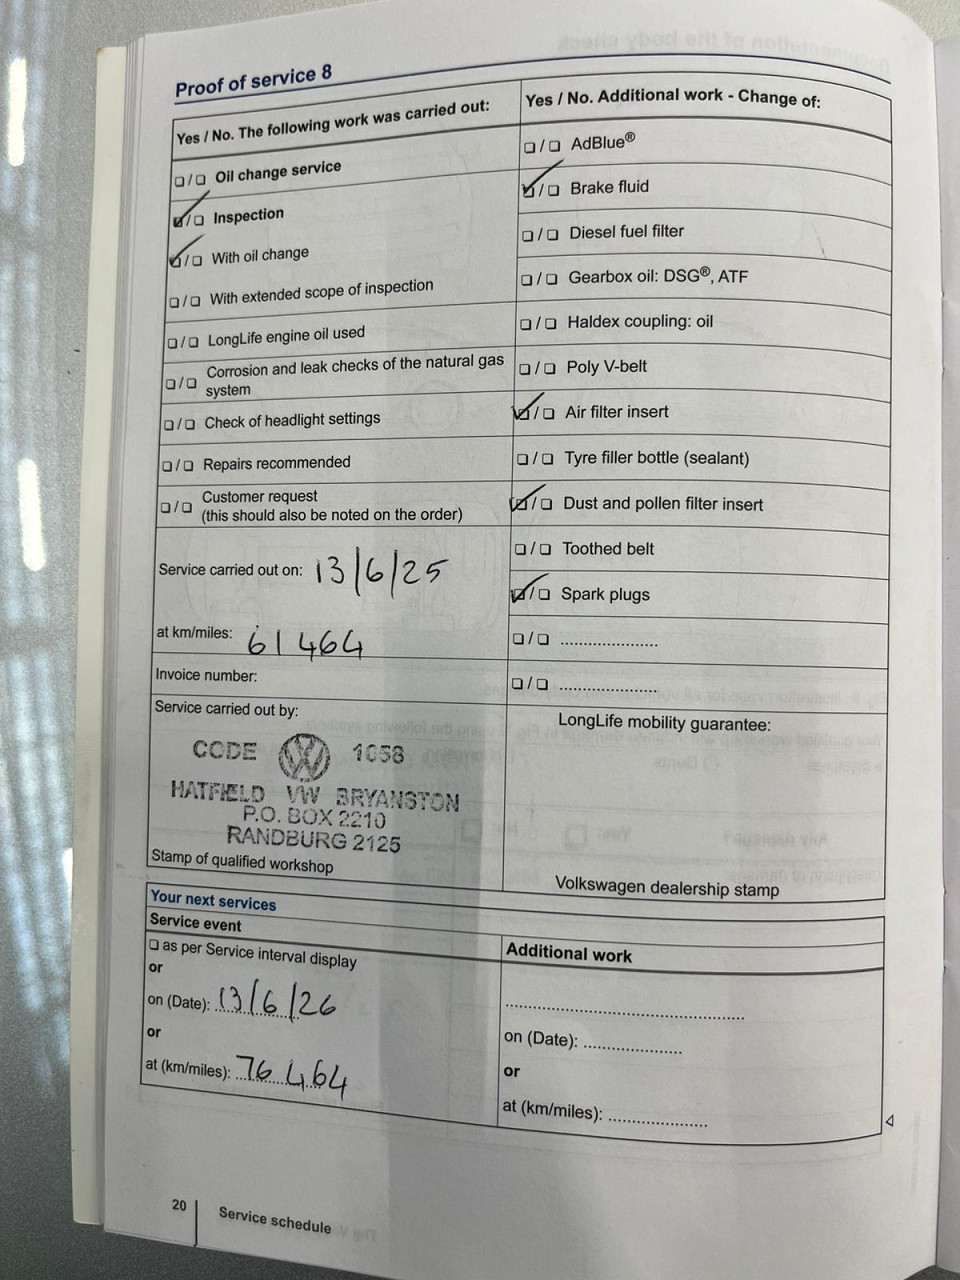 Proof of service 8
Yes / No. The following work was carried out:
☐/☐ Oil change service
☑/☐ Inspection
☑/☐ With oil change
☐/☐ With extended scope of inspection
☐/☐ LongLife engine oil used
☐/☐ Corrosion and leak checks of the natural gas
system
☐/☐ Check of headlight settings
☐/☐ Repairs recommended
☐/☐ Customer request
(this should also be noted on the order)
Service carried out on: 13/6/25
at km/miles: 61 464
Invoice number:
Service carried out by:
CODE VW 1058
HATFIELD VW BRYANSTON
P.O. BOX 2210
RANDBURG 2125
Stamp of qualified workshop
Yes / No. Additional work - Change of:
☐/☐ AdBlue®
☑/☐ Brake fluid
☐/☐ Diesel fuel filter
☐/☐ Gearbox oil: DSG®, ATF
☐/☐ Haldex coupling: oil
☐/☐ Poly V-belt
☑/☐ Air filter insert
☐/☐ Tyre filler bottle (sealant)
☑/☐ Dust and pollen filter insert
☐/☐ Toothed belt
☑/☐ Spark plugs
☐/☐ ....................
☐/☐ ....................
LongLife mobility guarantee:
Volkswagen dealership stamp
Your next services
Service event
☐ as per Service interval display
or
on (Date): 13/6/26
or
at (km/miles): 76 464
Additional work
..................................................
on (Date): ....................
or
at (km/miles): ....................
20 Service schedule